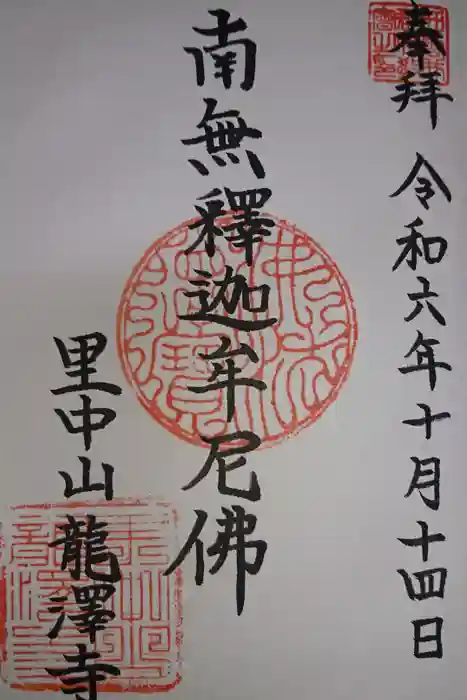 奉拝 令和六年十月十四日
南無釋迦牟尼佛
里中山 龍澤寺